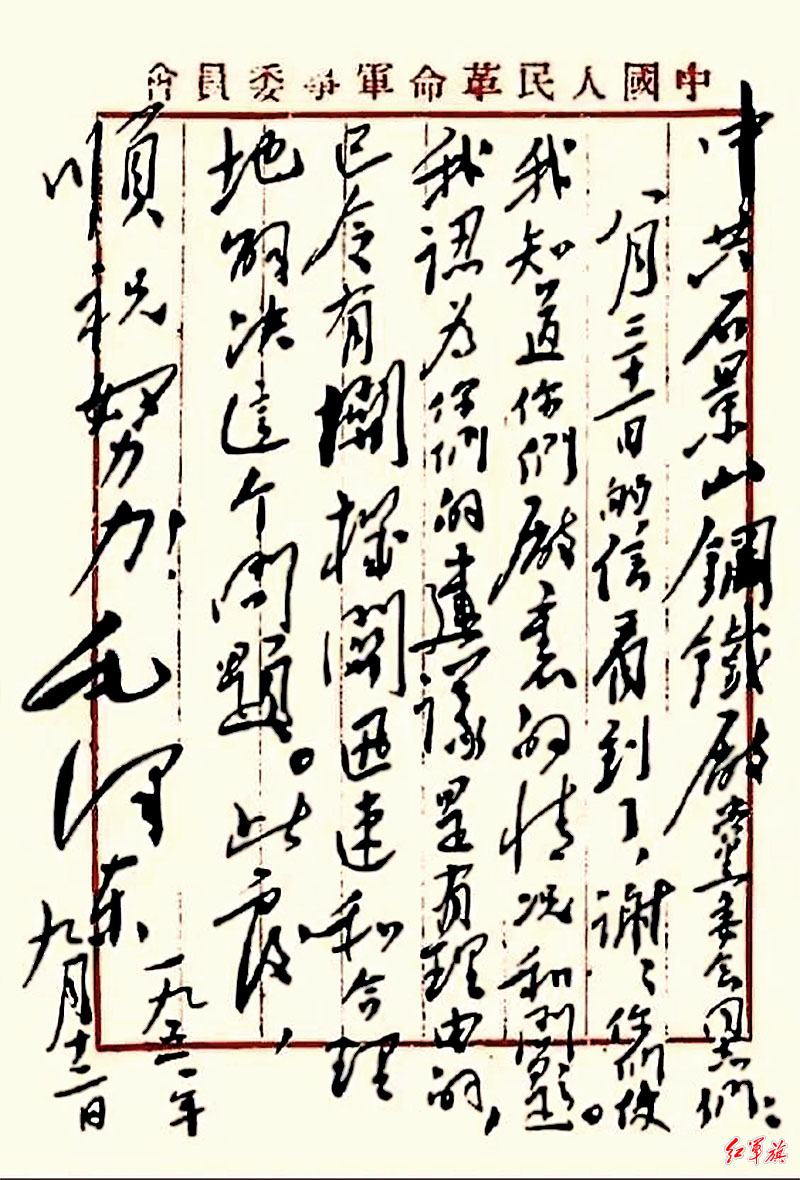 中國人民革命軍事委員會
中共石景山鋼鐵廠黨委会同志們：
八月三十一日的信看到了，謝々你们使
我知道你們廠裏的情况和问题。
我認为你們的建議是有理由的，
已令有關機關迅速和合理
地解决這个问題。此復，
順祝努力！
毛澤东
一九五一年
九月十二日
红军旗